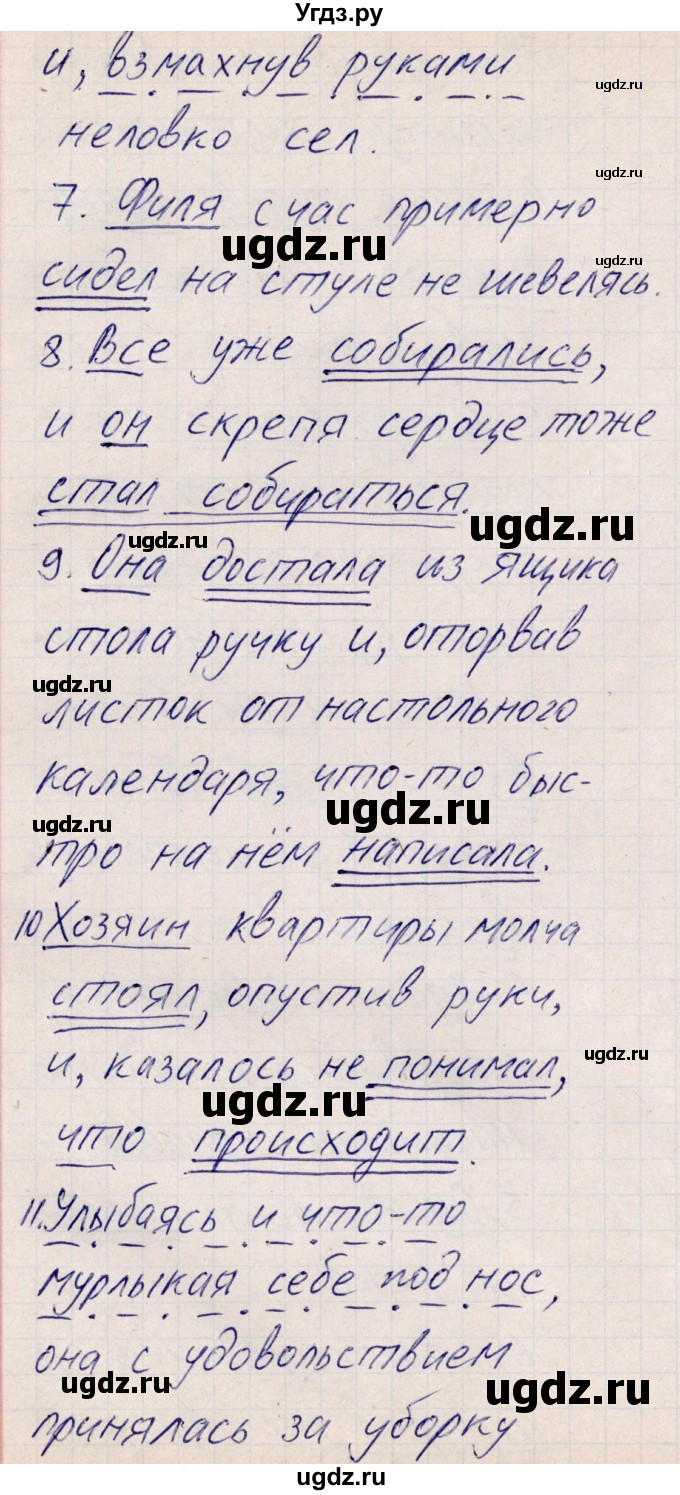 Угдз.ру
и, взмахнув руками
ugdz.ru
неловко сел.
ugdz.ru
7. Филя с час примерно
ugdz.ru
ugdz.ru
сидел на стуле не шевелясь.
8. Все уже собирались,
ugdz.ru
и он скрепя сердце тоже
стал собираться.
ugdz.ru
ugdz.ru
9. Она достала из ящика
стола ручку и, оторвав
ugdz.ru
листок от настольного
календаря, что-то быс-
ugdz.ru
ugdz.ru
тро на нём написала.
10 Хозяин квартиры молча
стоял, опустив руки,
и, казалось не понимал,
ugdz.ru
ugdz.ru
что происходит.
11. Улыбаясь и что-то
мурлыкая себе под нос,
она с удовольствием
ugdz.ru
ugdz.ru
принялась за уборку
ugdz.ru